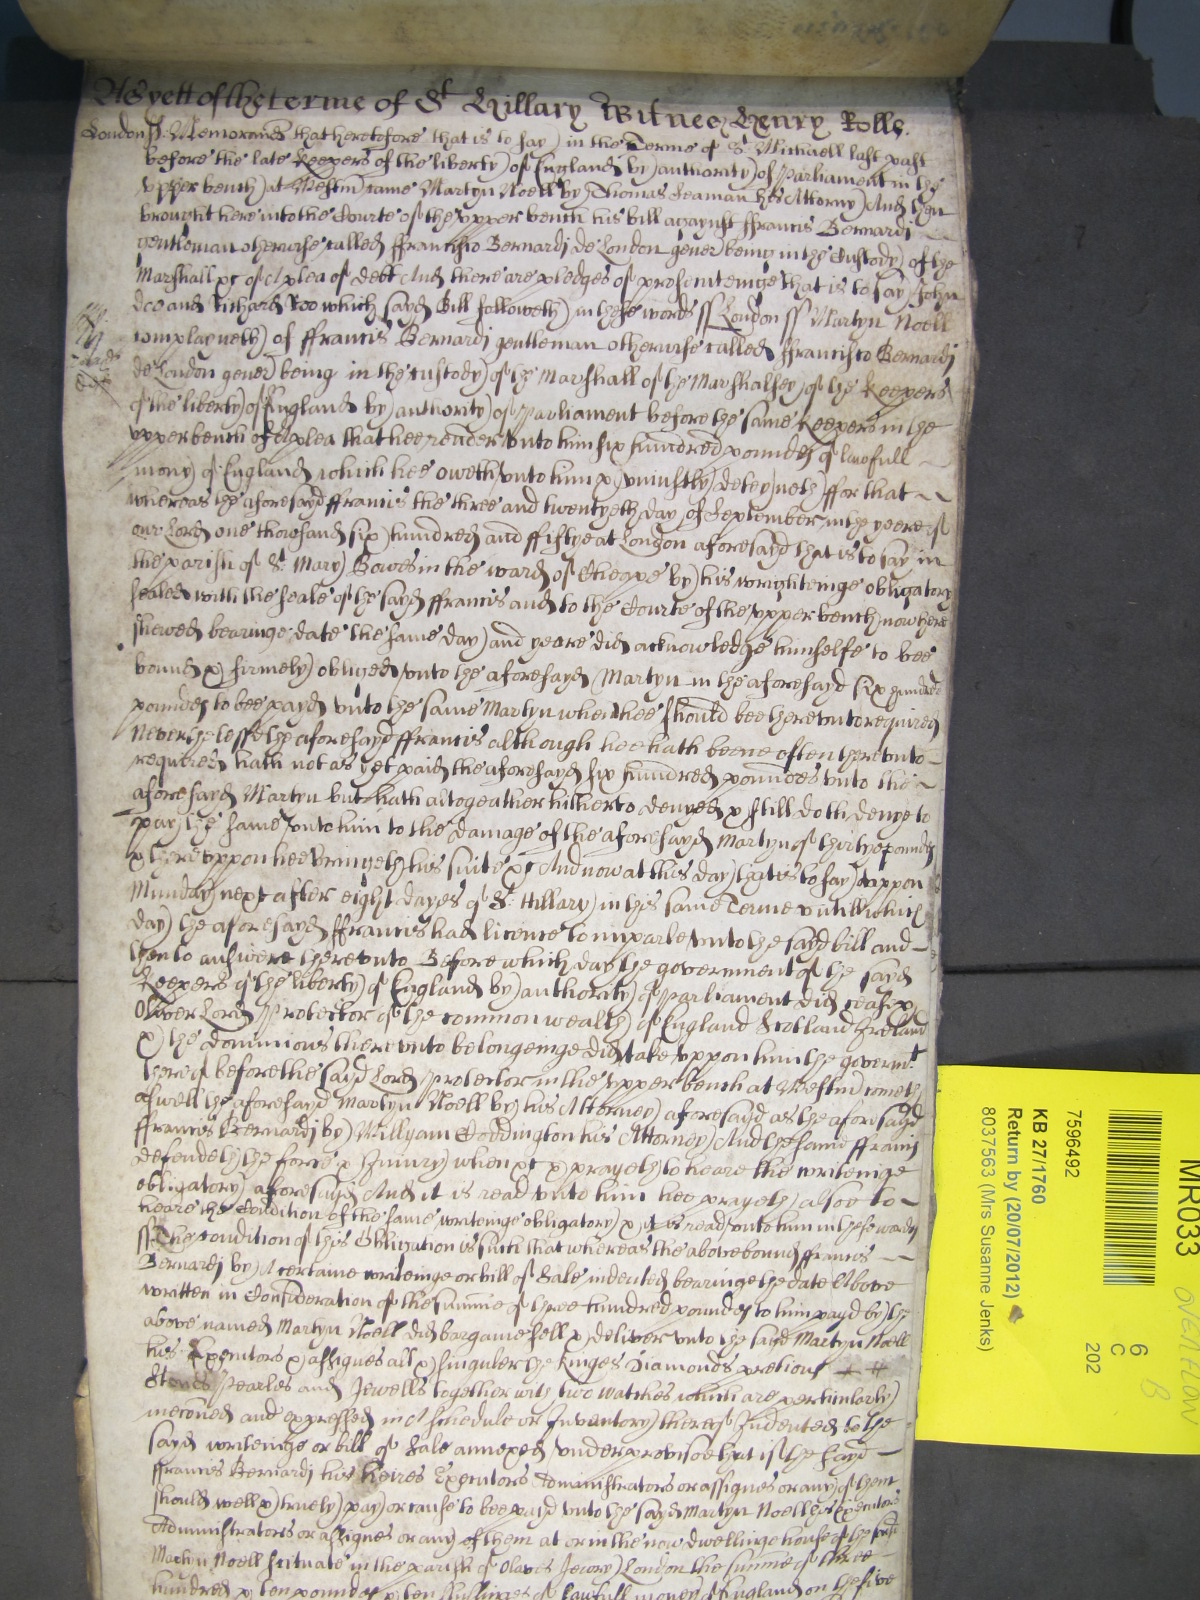 As yett of the terme of St Hillary Witnes Henry Rolle.
London ss. Memorand that heretofore that is to say in the Terme of St. Michaell last past
before the late Keepers of the liberty of England by authority of Parliament in the
upper bench at Westm came Martyn Noell by Thomas Seaman his Attorny And then
brought here into the Courte of the upper bench his bill agaynst ffrancis Bernardi
gentleman otherwise called ffrancisco Bernardi de London gener being in the Custody of the
Marshall &c of A plea of debt And there are pledges of prosecuteinge that is to say John
doe and Richard Roo which sayd Bill followeth in these words ss London ss Martyn Noell
complayneth of ffrancis Bernardi gentleman otherwise called ffrancisco Bernardi
de London gener being in the custody of the Marshall of the Marshalsey of the Keepers
of the liberty of England by authority of Parliament before the same Keepers in the
upper bench of A plea that hee render unto him six hundred pounds of lawfull
mony of England which hee oweth unto him & uniustly deteyneth ffor that
whereas the aforesayd ffrancis the three and twentyeth day of September in the yeere of
our Lord one thowsand six hundred and fiftye at London aforesayd that is to say in
the parish of St. Mary Bowes in the ward of Cheape by his wrighteinge obligatory
sealed with the seale of the sayd ffrancis and to the Courte of the upper bench now here
shewed bearinge date the same day and yeere did acknowledge himselfe to bee
bound & firmely obliged unto the aforesayd Martyn in the aforesayd six hundred
pounds to bee payd unto the same Martyn when hee should bee thereunto required
Neverthelesse the aforesayd ffrancis although hee hath beene often thereunto
required hath not as yet paid the aforesayd six hundred pounds unto the
aforesayd Martyn but hath altogeather hitherto denyed & still doth denye to
pay the same unto him to the damage of the aforesayd Martyn of thirtye pounds
& thereuppon hee bringeth his suite &c And now at this day that is to say uppon
Munday next after eight dayes of St. Hillary in this same Terme untill which
day the aforesayd ffrancis had licence to imparle unto the sayd bill and
then to answere thereunto Before which day the government of the sayd
Keepers of the liberty of England by authority of Parliament did cease &
Oliver Lord Protector of the common wealth of England Scotland Ireland
& the dominions thereunto belongeinge did take uppon him the governmt
thereof before the sayd Lord Protector in the upper bench at Westm cometh
aswell the aforesayd Martyn Noell by his Attorney aforesayd as the aforesayd
ffrancis Bernardi by Willyam Coddington his Attorney And the same ffrancis
defendeth the force & Iniury when &c & prayeth to heare the writeinge
obligatory aforesayd And it is read unto him hee prayeth alsoe to
heare the Condition of the same writeinge obligatory & it is read unto him in these words
ss The condition of this Obligation is such that whereas the above bound ffrancis
Bernardi by A certaine writeinge or bill of Sale indented bearinge the date Above
written in Consideration of the summe of three hundred pounds to him payd by the
above named Martyn Noell did bargaine sell & deliver unto the sayd Martyn Noell
his Executors & assignes all & singuler the Ringes Diamonds pretious
Stones Pearles and Jewells together with two watches which are perticularly
menconed and expressed in A schedule or Inventory thereof Indented to the
sayd writeinge or bill of Sale annexed under proviso that if the sayd
ffrancis Bernardi his heires Executors Administrators or assignes or any of them
should well & truely pay or cause to bee payd unto the sayd Martyn Noell his Executors
Administrators or assignes or any of them at or in the now dwellinge house of the
Martyn Noell scituate in the parish of Olaves Jewry London the summe of three
hundred & ten pounds & ten shillinges of lawfull money of England on the five
MR033
OVERFLOW
B
6
C
202
7596492
KB 27/1760
Return by (20/07/2012)
8037563 (Mrs Susanne Jenks)